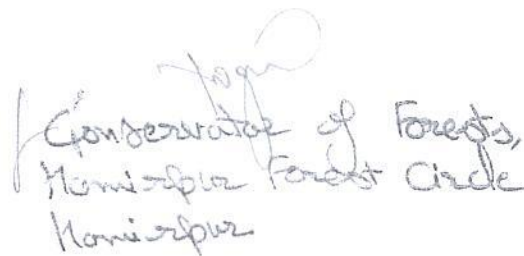 Conservator of Forests,
Hamirpur Forest Circle
Hamirpur